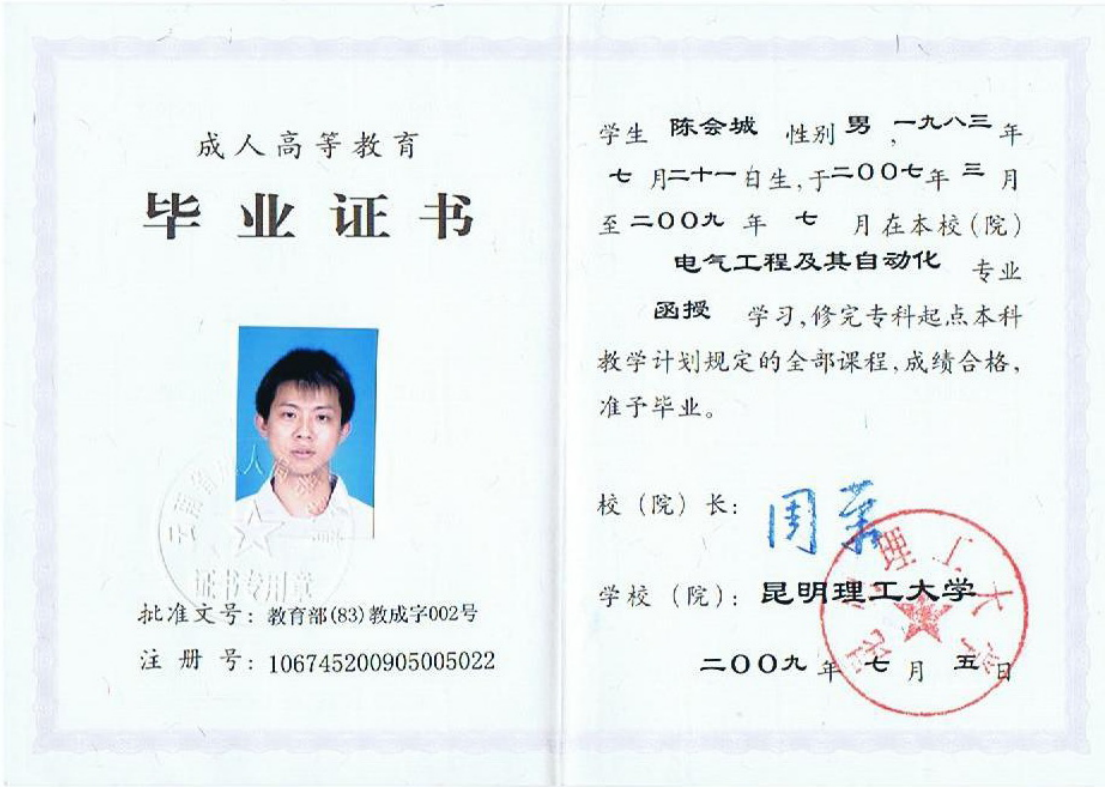 成人高等教育
毕业证书
云南省成人高等教育
证书专用章
批准文号：教育部(83)教成字002号
注册号：106745200905005022
学生 陈会城 性别 男，一九八三年
七月二十一日生，于二〇〇七年三月
至二〇〇九年七月在本校（院）
电气工程及其自动化 专业
函授 学习，修完专科起点本科
教学计划规定的全部课程，成绩合格，
准予毕业。
校（院）长：周荣
学校（院）：昆明理工大学
昆明理工大学
二〇〇九年七月五日